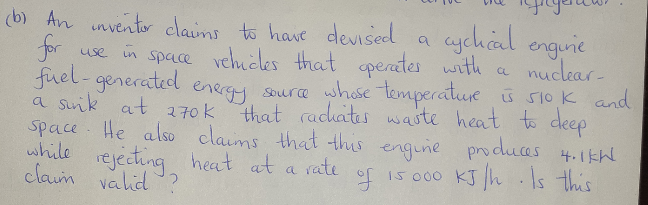 (b) An inventor claims to have devised a cyclical engine
for use in space vehicles that operates with a nuclear-
fuel-generated energy source whose temperature is 510 K and
a sink at 270 K that radiates waste heat to deep
space. He also claims that this engine produces 4.1kW
while rejecting heat at a rate of 15 000 KJ/h. Is this
claim valid?